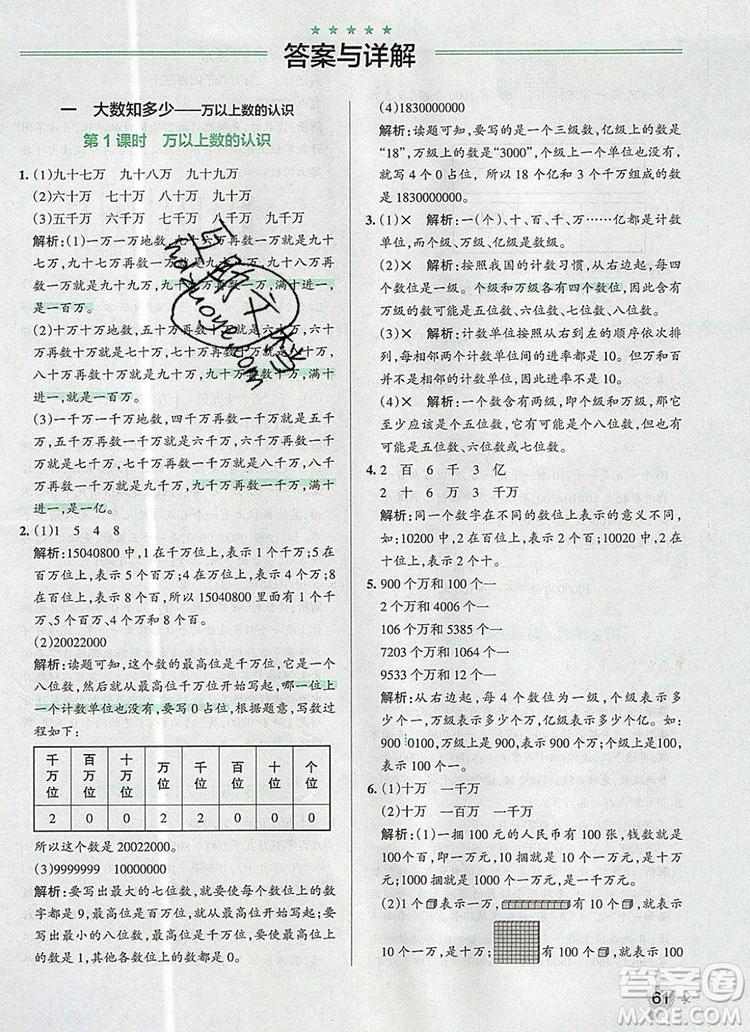 答案与详解
一 大数知多少——万以上数的认识
第1课时 万以上数的认识
1. (1)九十七万 九十八万 九十九万
(2)六十万 七十万 八十万 九十万
(3)五千万 六千万 七千万 八千万 九千万
解析:(1)一万一万地数,九十六万再数一万就是九十
七万,九十七万再数一万就是九十八万,九十八万
再数一万就是九十九万,九十九万再数一万,满十进一,
是一百万。
(2)十万十万地数,五十万再数十万就是六十万,六十万
再数十万就是七十万,七十万再数十万就是八十万,八十万
再数十万就是九十万,九十万再数十万,满十
进一,就是一百万。
(3)一千万一千万地数,四千万再数一千万就是五千
万,五千万再数一千万就是六千万,六千万再数一千
万就是七千万,七千万再数一千万就是八千万,八千万
再数一千万就是九千万,九千万再数一千万,满十
进一,是一亿。
2. (1)1 5 4 8
解析:15040800中,1在千万位上,表示1个千万;5在
百万位上,表示5个百万;4在万位上,表示4个万;8
在百位上,表示8个百。所以15040800里面有1个千
万、5个百万、4个万和8个百。
(2)20022000
解析:读题可知,这个数的最高位是千万位,它是一个
八位数,然后就从最高位千万位开始写起,哪一位上一
个计数单位也没有,要写0占位。根据题意,写数过
程如下:
千万位 百万位 十万位 万位 千位 百位 十位 个位
2 0 0 2 2 0 0 0
所以这个数是20022000。
(3)9999999 10000000
解析:要写出最大的七位数,就需要每个数位上的数
字都是9,最高位是百万位,从百万位写起。要写出最
小的八位数,最高位是千万位,从千万位写起,千万位
上是1,其他各数位上的数都是0。
(4)1830000000
解析:读题可知,要写的是一个三级数,亿级上的数是
“18”,万级上的数是“3000”,个级上一个单位也没有,
就写4个0占位。所以18个亿和3个千万组成的数是
1830000000。
3. (1)× 解析:一(个)、十、百、千、万……亿都是计数
单位,而个级、万级、亿级都是数级。
(2)× 解析:按照我国的计数习惯,从右边起,每四个
数位为一级。个级和万级各有四个数位,因此,含有
万级的数可能是五位数、六位数、七位数、八位数。
(3)× 解析:计数单位按照从右到左的顺序依次排
列,每相邻两个计数单位间的进率都是10。但万和百
并不是相邻的计数单位,因此它们的进率不是10。
(4)× 解析:一个数含有两级,即个级和万级,那它
至少应该含有四个个级的数位,一个万级的数位,因此
可能是五位数、六位数或七位数。
4. 2 百 6 千 3 亿
2 十 6 万 3 千万
解析:同一个数字在不同的数位上表示的意义不同,
如:10200中,2在百位上,表示2个百;10020中,2在
十位上,表示2个十。
5. 900个万和100个一
2个万和4006个一
106个万和5385个一
7203个万和1064个一
9533个万和12个一
解析:从右边起,每4个数位为一级,个级表示多
少个一,万级表示多少个万,亿级表示多少个亿。如:
900 0100,万级上是900,表示900个万;个级上是
100,表示100个一。
6. (1)十万 一千万
(2)十万 一百万 一千万
解析:(1)一捆100元的人民币有100张,钱数就是
100个100元,即一万元,10捆是10个一万元,是十万
元;1000捆是1000个一万元,是一千万元。
(2)1个 有10个一万,是十万;
有10个,
10个一万,是十万; 有100个
61
答案圈
MXQE.COM